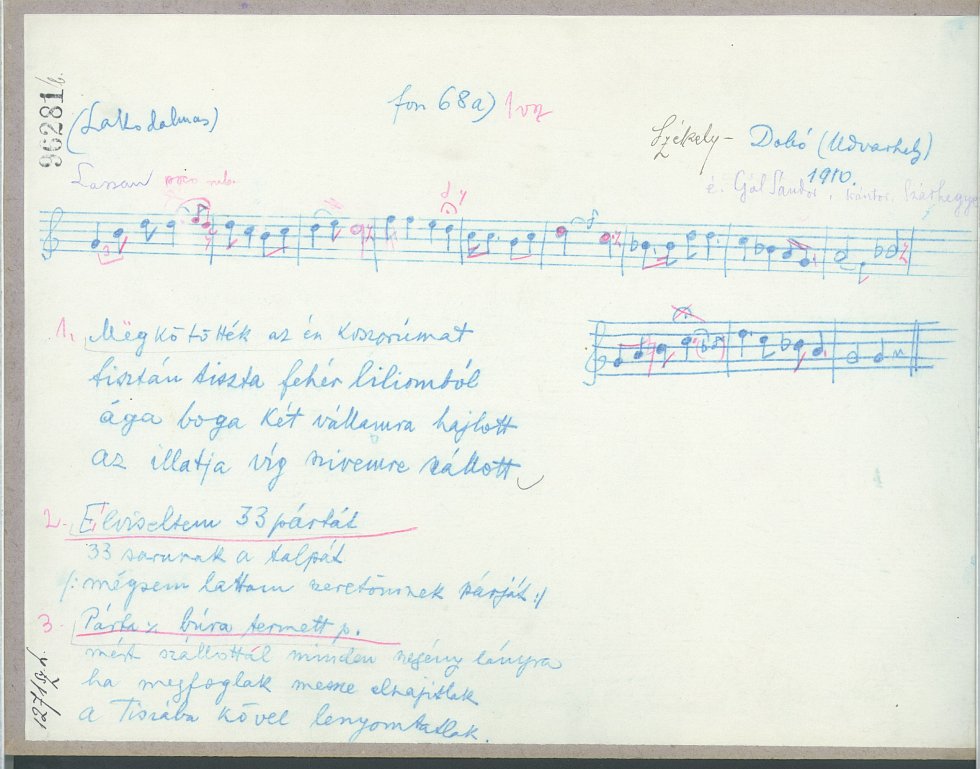 96281/b.
fon 68a) 1 vz
(Lakodalmas)
Székely - Dobó (Udvarhely)
1910.
Lassan
é. Gál Sándor, kántor,
3
1, Mëgkötötték az én koszorúmat
tisztán tiszta fehér liliomból
ága boga két vállamra hajlott
az illatja víg szivemre szállott
2. Elviseltem 33 pártát
33 sarunak a talpát
/: mégsem láttam szeretőmnek párját :/
3. Párta % búra termett p.
mért szállottál minden szegény lányra
ha megfoglak messze elhajitlak
a Tiszába kővel lenyomtatlak.